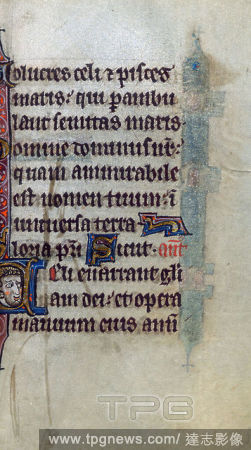 olucres celi ⁊ pisces
maris: qui pambu
lant semitas maris.
omine dominus nr̄:
quam ammirabile
est nomen tuum: ī
uniuersa terra
loria p̄ri Sicut. añt
Celi enarrant glī
am dei: et opera
manuum eius annū
TPG
www.tpgnews.com/ 達志影像